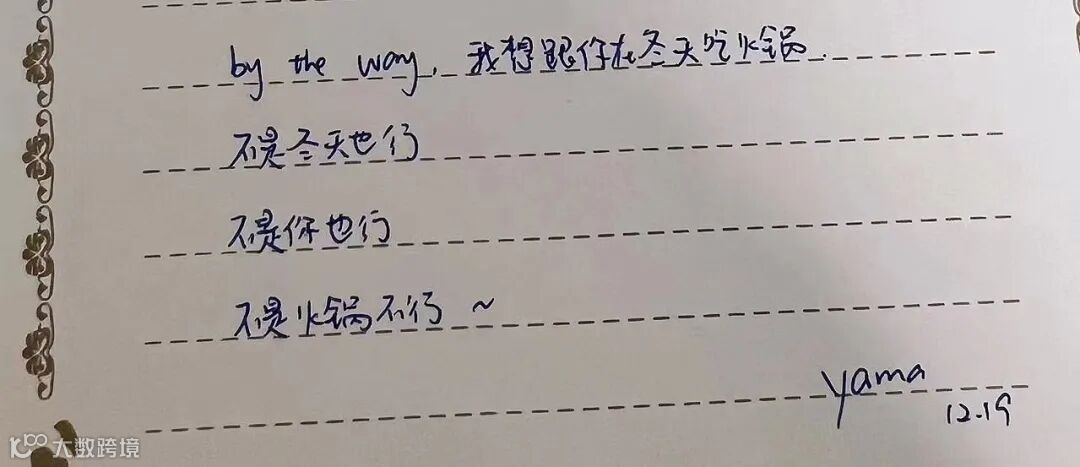 by the way, 我想跟你在冬天吃火锅.
不是冬天也行
不是你也行
不是火锅不行 ~
yama
12.19
大数跨境